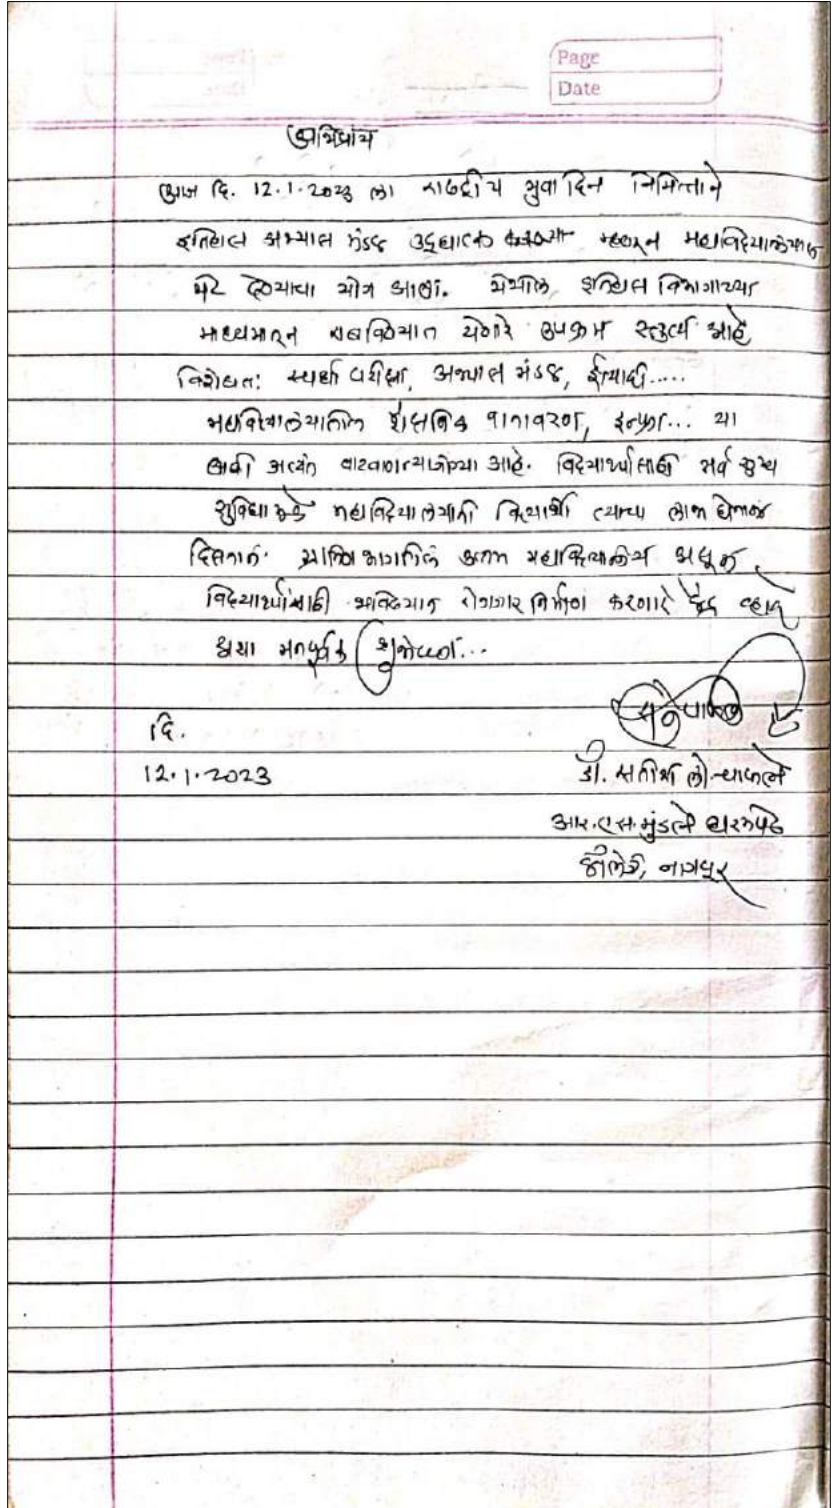 Page
Date
अभिप्राय
आज दि. 12.1.2023 ला राष्ट्रीय युवा दिन निमित्ताने
इतिहास अभ्यास मंडळ उद्घाटक म्हणून महाविद्यालयात
भेट देण्याचा योग आला. येथील इतिहास विभागाच्या
माध्यमातून राबविण्यात येणारे उपक्रम स्तुत्य आहे
विशेषतः स्पर्धा परीक्षा, अभ्यास मंडळ, ईत्यादी.....
महाविद्यालयातील शैक्षणिक वातावरण, इन्फ्रा... या
बाबी अत्यंत वाखाणण्याजोग्या आहे. विद्यार्थ्यांसाठी सर्व सुख
सुविधा मुळे महाविद्यालयाती विद्यार्थी त्याचा लाभ घेतांना
दिसतात. ग्रामिण भागातील उत्तम महाविद्यालय असून
विद्यार्थ्यांसाठी भविष्यात रोजगार निर्माण करणारे केंद्र व्हावे
अशा मनपूर्वक शुभेच्छा...
दि.
12.1.2023
डॉ. सतीश लो. चाफले
आर.एस. मुंडले धरमपेठ
कॉलेज, नागपूर